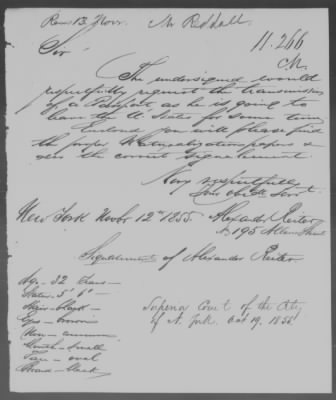 Rec 13 Novr. Mr Riddall
11.266
M.
Sir
The undersigned would
respectfully request the transmission
of a Passport, as he is going to
leave the U. States for some time
Enclosed you will please find
the proper Naturalization papers &
also the correct Signalement.
Very respectfully
Your Obdt Servt
New York Novbr 12th 1855. Alexander Reiter
195 Allen Street
Signalement of Alexander Reiter
Age - 32 Years -
Statur - 5' 6" -
Hair - black -
Eyes - brown
Nose - common
Mouth - small
Face - oval
Beard - black
Superior Court of the City
of N. York. Oct 19. 1855.